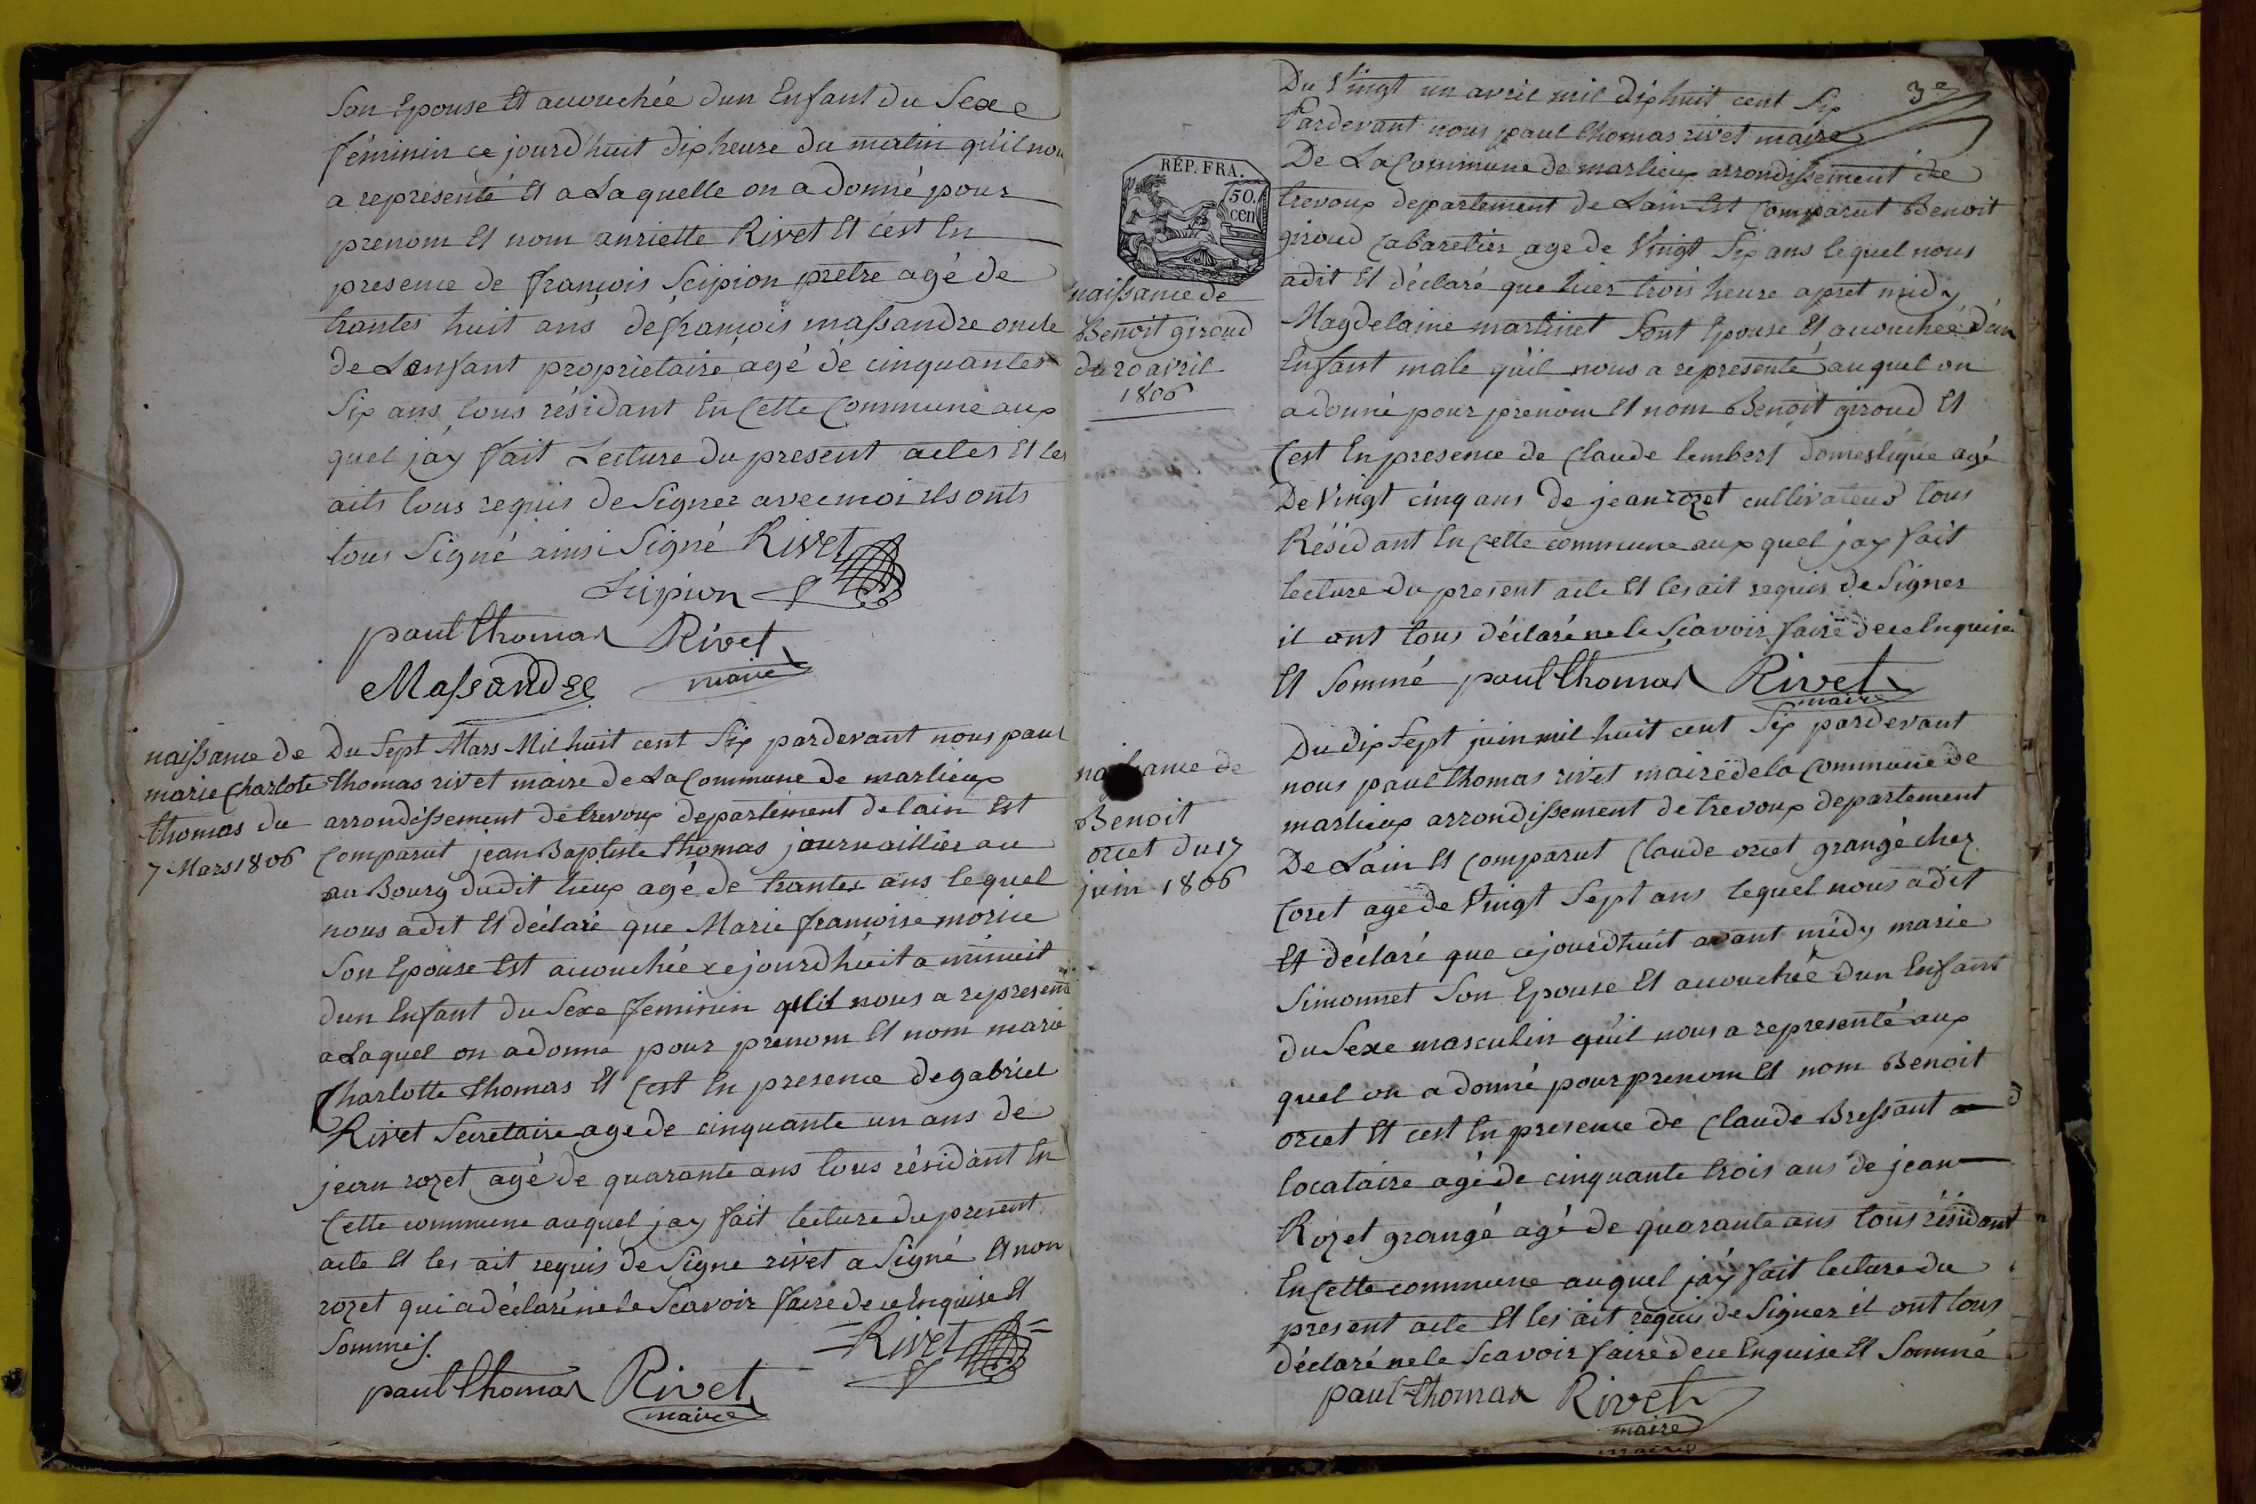 Son Epouse Et accouchée dun Enfant du Sexe
féminin ce jourd'huit dix heure du matin qu'il nou
a representé Et a Laquelle on a donné pour
prenom Et nom anriette Rivet Et c'est En
presence de françois Scipion prêtre agé de
trantes huit ans de françois massandre oncle
de Lenfant propriètaire agé de cinquantes
Six ans, tous résidant En Cette Commune aux
quel j'ay fait Lecture du present actes Et les
aits tous requis de Signer avec moi ils onts
tous Signé ainsi Signé Rivet
Scipion
paul thomas Rivet
maire
Massandre
naissance de
marie Charlote
thomas du
7 Mars 1806
Du Sept Mars Mil huit cent Six pardevant nous paul
thomas rivet maire de La Commune de marlieux
arrondissement de trevoux departement de lain Est
Comparut jean Baptiste thomas journaillier au
au Bourg dudit lieux agé de trantes ans lequel
nous a dit Et déclaré que Marie françoise morice
Son Epouse Est accouchée ce jourd'huit a minuit
dun Enfant du Sexe feminin qu'il nous a representé
a Laquel on a donné pour prenom Et nom marie
Charlotte thomas Et C'est En presence de gabriel
Rivet Secretaire age de cinquante un ans de
jean rozet agé de quarante ans tous résidant En
Cette commune auquel jay fait lecture du present
acte Et les ait requis de Signe rivet a Signé Et non
rozet qui a déclaré ne le Scavoir faire de ce Enquise Et
Sommés.
=Rivet=
paul thomas Rivet
maire
3e
RÉP. FRA.
50.
cen
naissance de
Benoit giroud
du 20 avril
1806
Du Vingt un avril mil dix huit cent Six
Pardevant nous paul thomas rivet maire
De La Commune de marlieux arrondissement de
trevoux departement de Lain Est Comparut Benoit
giroud Cabaretier age de Vingt Six ans lequel nous
a dit Et déclaré que hier trois heure apret midy
Magdelaine martinet Sont Epouse Et accouchée d'un
Enfant male qu'il nous a representé auquel on
a donné pour prenom Et nom Benoit giroud Et
C'est En presence de Claude lambert domestique agé
De Vingt cinq ans de jean rozet cultivateur tous
Résidant En Cette commune aux quel jay fait
lecture du present acte Et les ait requis de Signer
il ont tous déclaré ne le Sçavoir faire de ce Enquise
Et Sommé paul thomas Rivet
maire
naissance de
Benoit
orcet du 17
juin 1806
Du dix Sept juin mil huit cent Six pardevant
nous paul thomas rivet maire de la Commune de
marlieux arrondissement de trevoux departement
De Lain Et Comparut Claude orcet grangé chez
Coret agé de Vingt Sept ans lequel nous a dit
Et déclaré que ce jourdhuit avant midy marie
Simonnet Son Epouse Et accouchée dun Enfant
du Sexe masculin qu'il nous a representé aux
quel on a donné pour prenom Et nom Benoit
orcet Et cest En presence de Claude Bressant
locataire agé de cinquante trois ans de jean
Rozet grangé agé de quarante ans tous résidant
En Cette commune auquel j'ay fait lecture du
present acte Et les ait requis de Signer il ont tous
déclaré ne le Scavoir faire de ce Enquise Et Sommé
paul thomas Rivet
maire